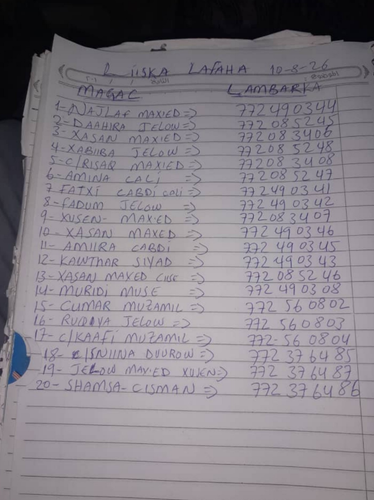 Liiska LAFAHA 10-8-26
MAGAC LAMBARKA
1- NAJLAF MAXED => 772490344
2- DAAHIRA JELOW => 772085245
3- XASAN MAXED => 772083406
4- XABIIBA JELOW => 772085248
5- C/RISAQ MAXED => 772083408
6- AMINA CALI => 772085247
7 FATXI CABDI CALI => 772490341
8- FADUM JELOW => 772490342
9- XUSEN- MAXED => 772083407
10- XASAN MAXED => 772490346
11- AMIIRA CABDI => 772490345
12- KAWTHAR SIYAD => 772490343
13- XASAN MAXED => 772085246
14- MURIDI MUSE => 772490308
15- CUMAR MUZAMIL => 772 560802
16- RUQIYA JELOW => 772 560803
17- C/KAAFI MUZAMIL => 772-560804
18- DUUROW => 772 376485
19- JELOW MAXED XUSEN => 772 376487
20- SHAMSA- CISMAN => 772 376486